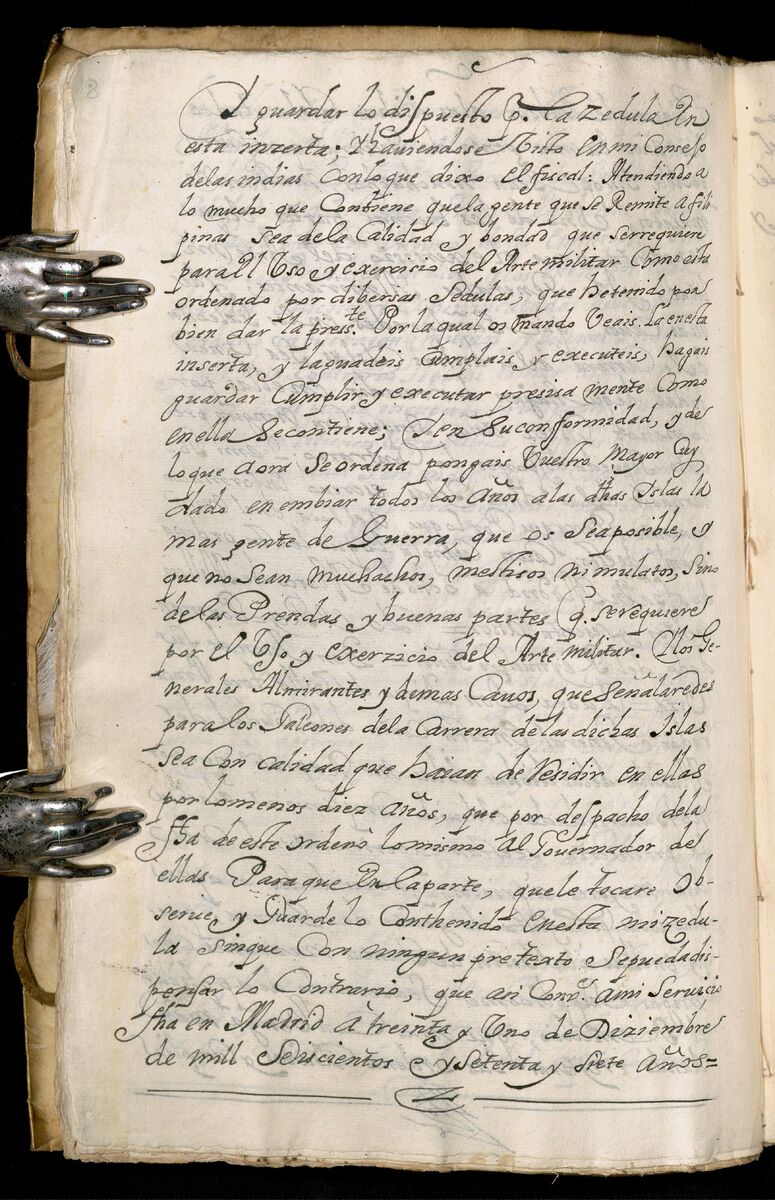 Y guardar lo dispuesto p. la Zedula En
esta inzerta; Y hauiendose Visto en mi Consejo
delas indias Con lo que dixo el fiscal: Atendiendo a
lo mucho que Contiene que la gente que se Remite a fili
pinas sea de la Calidad y bondad que se rrequiere
para El Uso y exercisio del Arte militar Como esta
ordenado por dibersas Sedulas, que he tenido por
bien dar la press.te Por la qual os mando Veais la en esta
inserta, y la guadeis Cumplais y executeis, hagais
guardar Cumplir y executar presisa mente Como
en ella Se contiene; Y en Su conformidad, y de
lo que aora Se ordena pongais Vuestro Mayor Cuy
dado en embiar todos los años a las dhas Islas la
mas gente de Guerra, que os Sea posible, y
que no Sean muchachos, mestisos ni mulatos, Sino
de las Prendas y buenas partes q. se requiere
por el Uso y exerzicio del Arte militar. Y los Ge-
nerales Almirantes y demas Cauos, que Señalaredes
para los Galeones de la Carrera de las dichas Islas
Sea Con calidad que haian de Residir en ellas
por lo menos diez años, que por despacho de la
fha de este ordenò lo mismo al Gouernador de
ellas Para que En la parte, que le tocare ob-
serue, y Guarde lo Conthenido en esta mi zedu-
la Sin que Con ningun pretexto Se pueda dis-
pensar lo Contrario, que asi Conv.e a mi Servicio
fha en Madrid â treinta y Uno de Diziembre
de mill Seiscientos e y Setenta y Siete años=